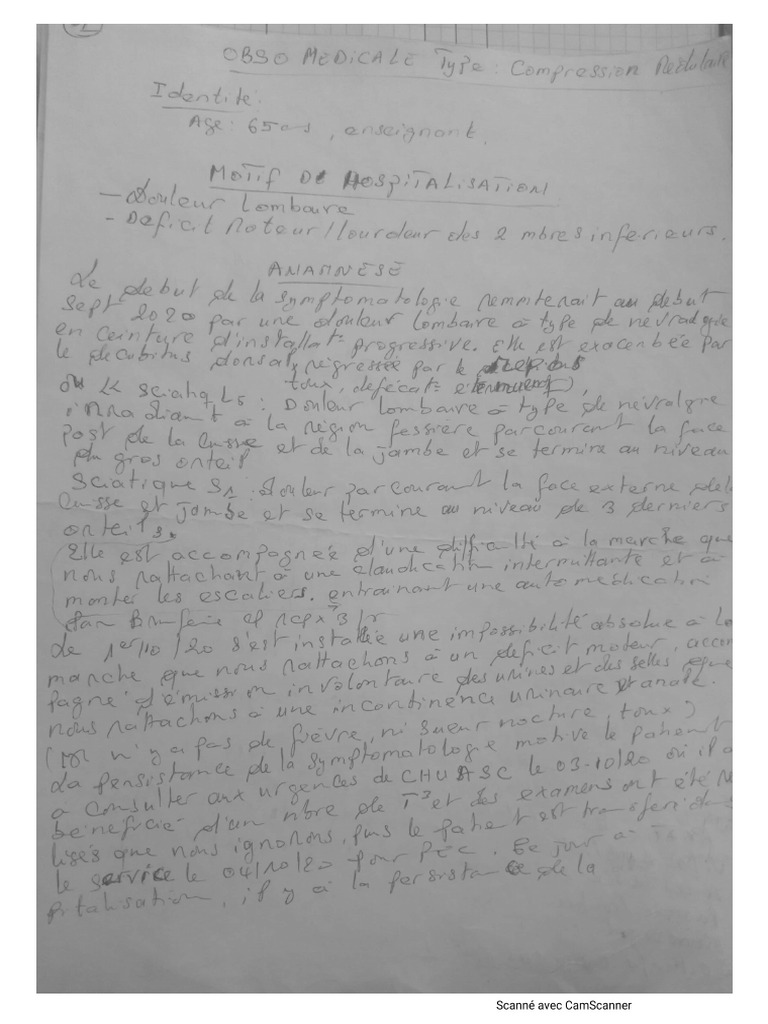 2
OBSO MEDICALE Type : Compression Médullaire
Identité :
Age : 65 ans, enseignant.
MOTIF DE HOSPITALISATION
- Douleur Lombaire
- Déficit Moteur / lourdeur des 2 mbres inferieurs.
ANAMNESE
Le debut de la symptomatologie remmtenait au debut
Sept 2020 par une douleur lombaire à type de nevralgie
en ceinture d'installat° progressive. Elle est exacerbée par
le decubitus dorsal, regressée par le repos
toux, defécat°
ou LX sciatq L5 : Douleur lombaire à type de névralgie
irradiant à la région fessière parcourant la face
post de la cuisse et de la jambe et se termine au niveau
du gros orteil
Sciatique S1 : douleur parcourant la face externe de la
cuisse et jambe et se termine au niveau de 3 derniers
orteils.
Elle est accompagnée d'une difficulté à la marche que
nous rattachant à une claudication intermittante et à
monter les escaliers. entrainant une automédication
1cp x 3/jr
Le 1er/10/20 s'est installée une impossibilité absolue à la
marche que nous rattachons à un deficit moteur, accom
pagné d'émission involontaire des urines et des selles que
nous rattachons à une incontinence urinaire et anale.
(On n'y a pas de fièvre, ni sueur nocture, toux)
La persistance de la symptomatologie motive le patient
à consulter aux urgences de CHU ASC le 03-10/20 où il a
béneficié d'un nbre de T3 et des examens ont été réa
lisés que nous ignorons, puis le patient est transferé dans
le service le 04/10/20 pour PEC. Ce jour à
pitalisation, il y a la persistance de la
Scanné avec CamScanner